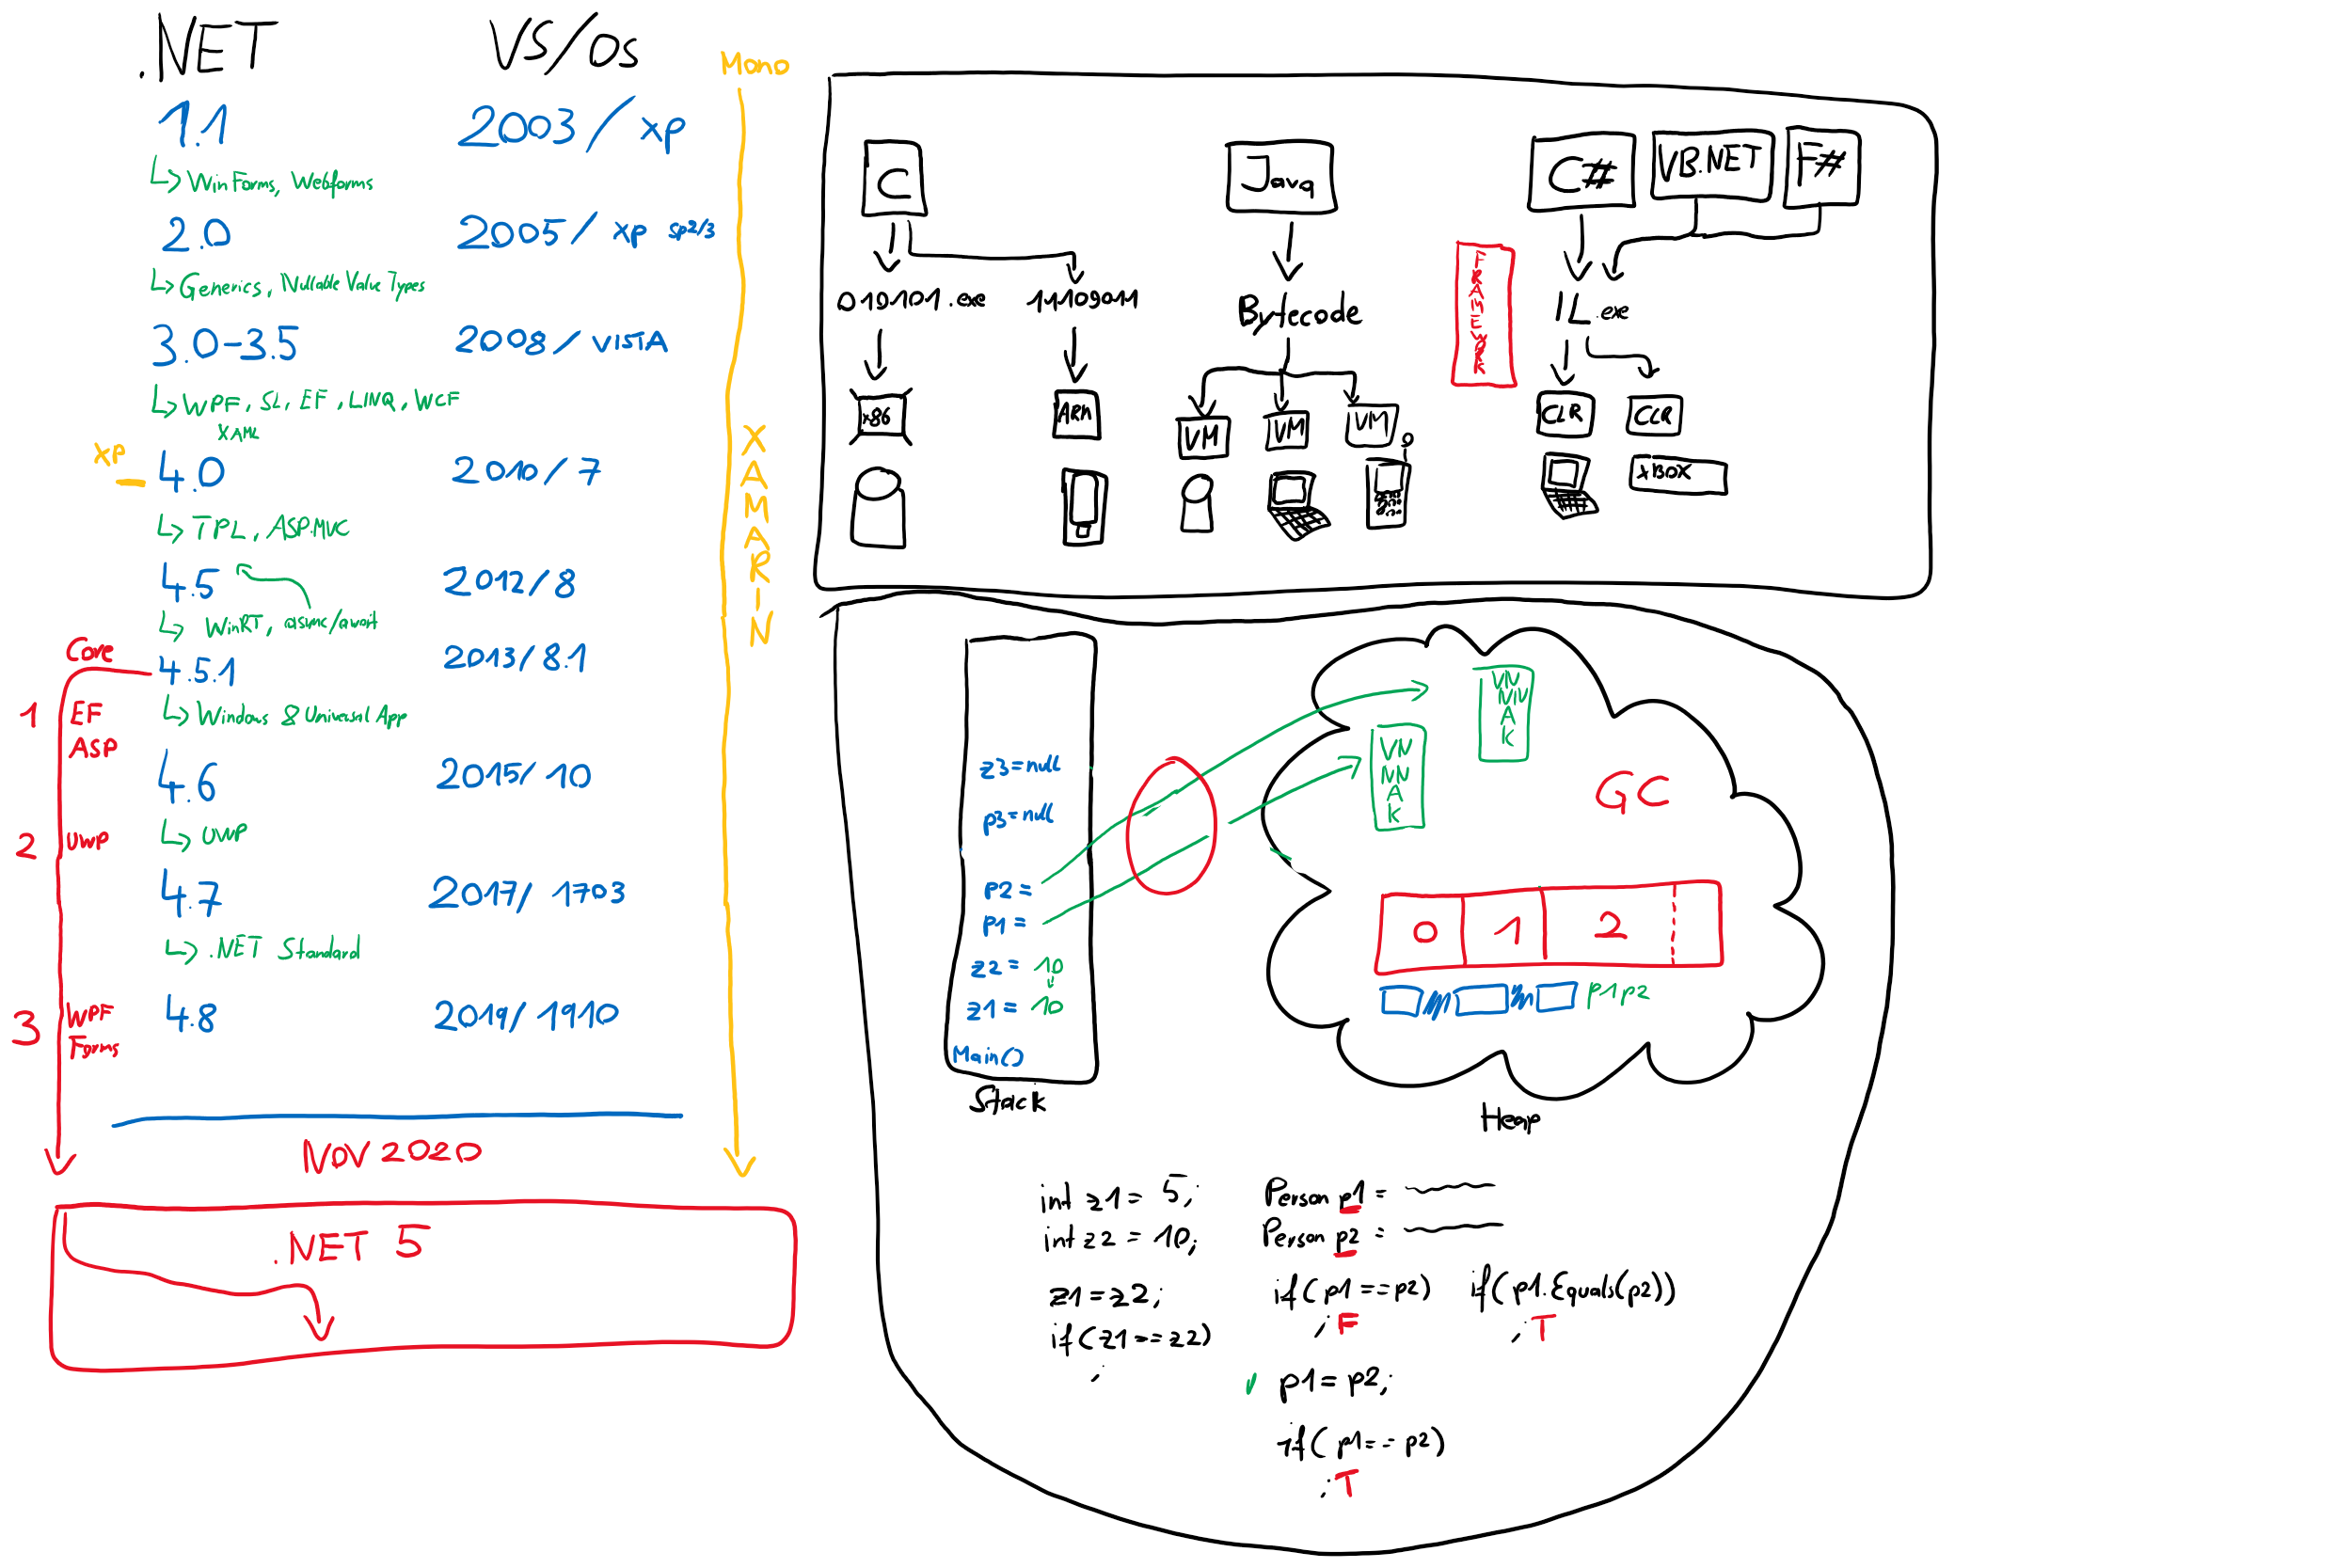 .NET VS/OS
Mono
1.1 2003/ XP
WinForms, Webforms
2.0 2005/ XP SP2/3
Generics, Nullable Value Types
3.0-3.5 2008/ VISTA
WPF, SL, EF, LINQ, WCF
XAML
XP
4.0 2010/7
TPL, ASP.MVC
4.5 2012/8
WinRT, async/await
Core
4.5.1 2013/8.1
1 EF
ASP
Windows & Universal App
4.6 2015/10
2 UWP
UWP
4.7 2017/ 1703
.NET Standard
3 WPF
Forms
4.8 2019/1910
XAMARIN
NOV 2020
.NET 5
C Java C# VB.NET F#
FRAMEWORK
010101.exe Bytecode IL.exe
x86 ARM VM VM VM CLR CLR
XBOX
z3=null
p3=null
p2 =
p1 =
z2 = 10
z1 = 10
Main()
Stack
VN
NN
A
K
VN
NN
A
K
GC
0 1 2
p1 p2
Heap
int z1 = 5;
int z2 = 10;
z1=z2;
if(z1==z2)
;
Person p1 =
Person p2 =
if(p1==p2) if(p1.Equals(p2))
; F ; T
p1=p2;
if(p1==p2)
; T